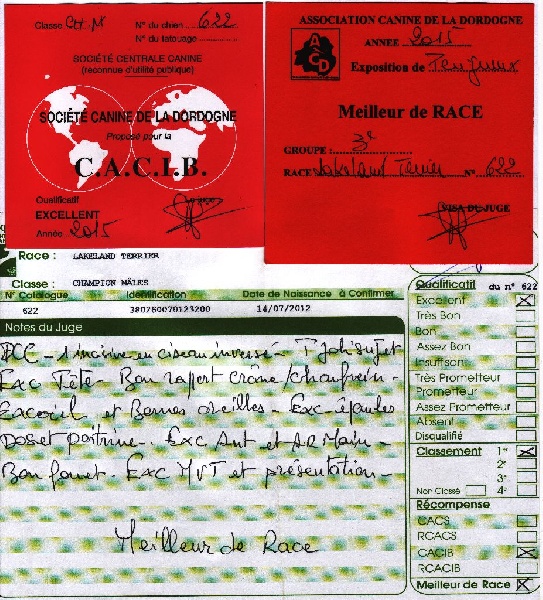 Classe CH. M N° du chien 622
N° du tatouage
SOCIÉTÉ CENTRALE CANINE
(reconnue d'utilité publique)
SOCIÉTÉ CANINE DE LA DORDOGNE
Proposé pour la
C.A.C.I.B.
Qualificatif
EXCELLENT
Année 2015
ASSOCIATION CANINE DE LA DORDOGNE
ACD
ANNÉE 2015
Exposition de
Meilleur de RACE
GROUPE : 3e
RACE Lakeland Terrier N° 622
VISA DU JUGE
Race : LAKELAND TERRIER
Classe : CHAMPION MÂLES
N° Catalogue Identification Date de Naissance à Confirmer
622 380780078123200 14/07/2012
Notes du Juge
DCC - 1 incisive en ciseau inversé - T joli sujet
Exc Tête - Bon rapport crâne/chanfrein -
Exc oeil et Bonnes oreilles - Exc épaules
Dos et poitrine - Exc Ant et AR Main -
Bon fouet. Exc MVT et présentation -
Meilleur de Race
Qualificatif du n° 622
Excellent X
Très Bon
Bon
Assez Bon
Insuffisant
Très Prometteur
Prometteur
Assez Prometteur
Absent
Disqualifié
Classement 1er X
2e
3e
Non Classé 4e
Récompense
CACS
RCACS
CACIB X
RCACIB
Meilleur de Race X